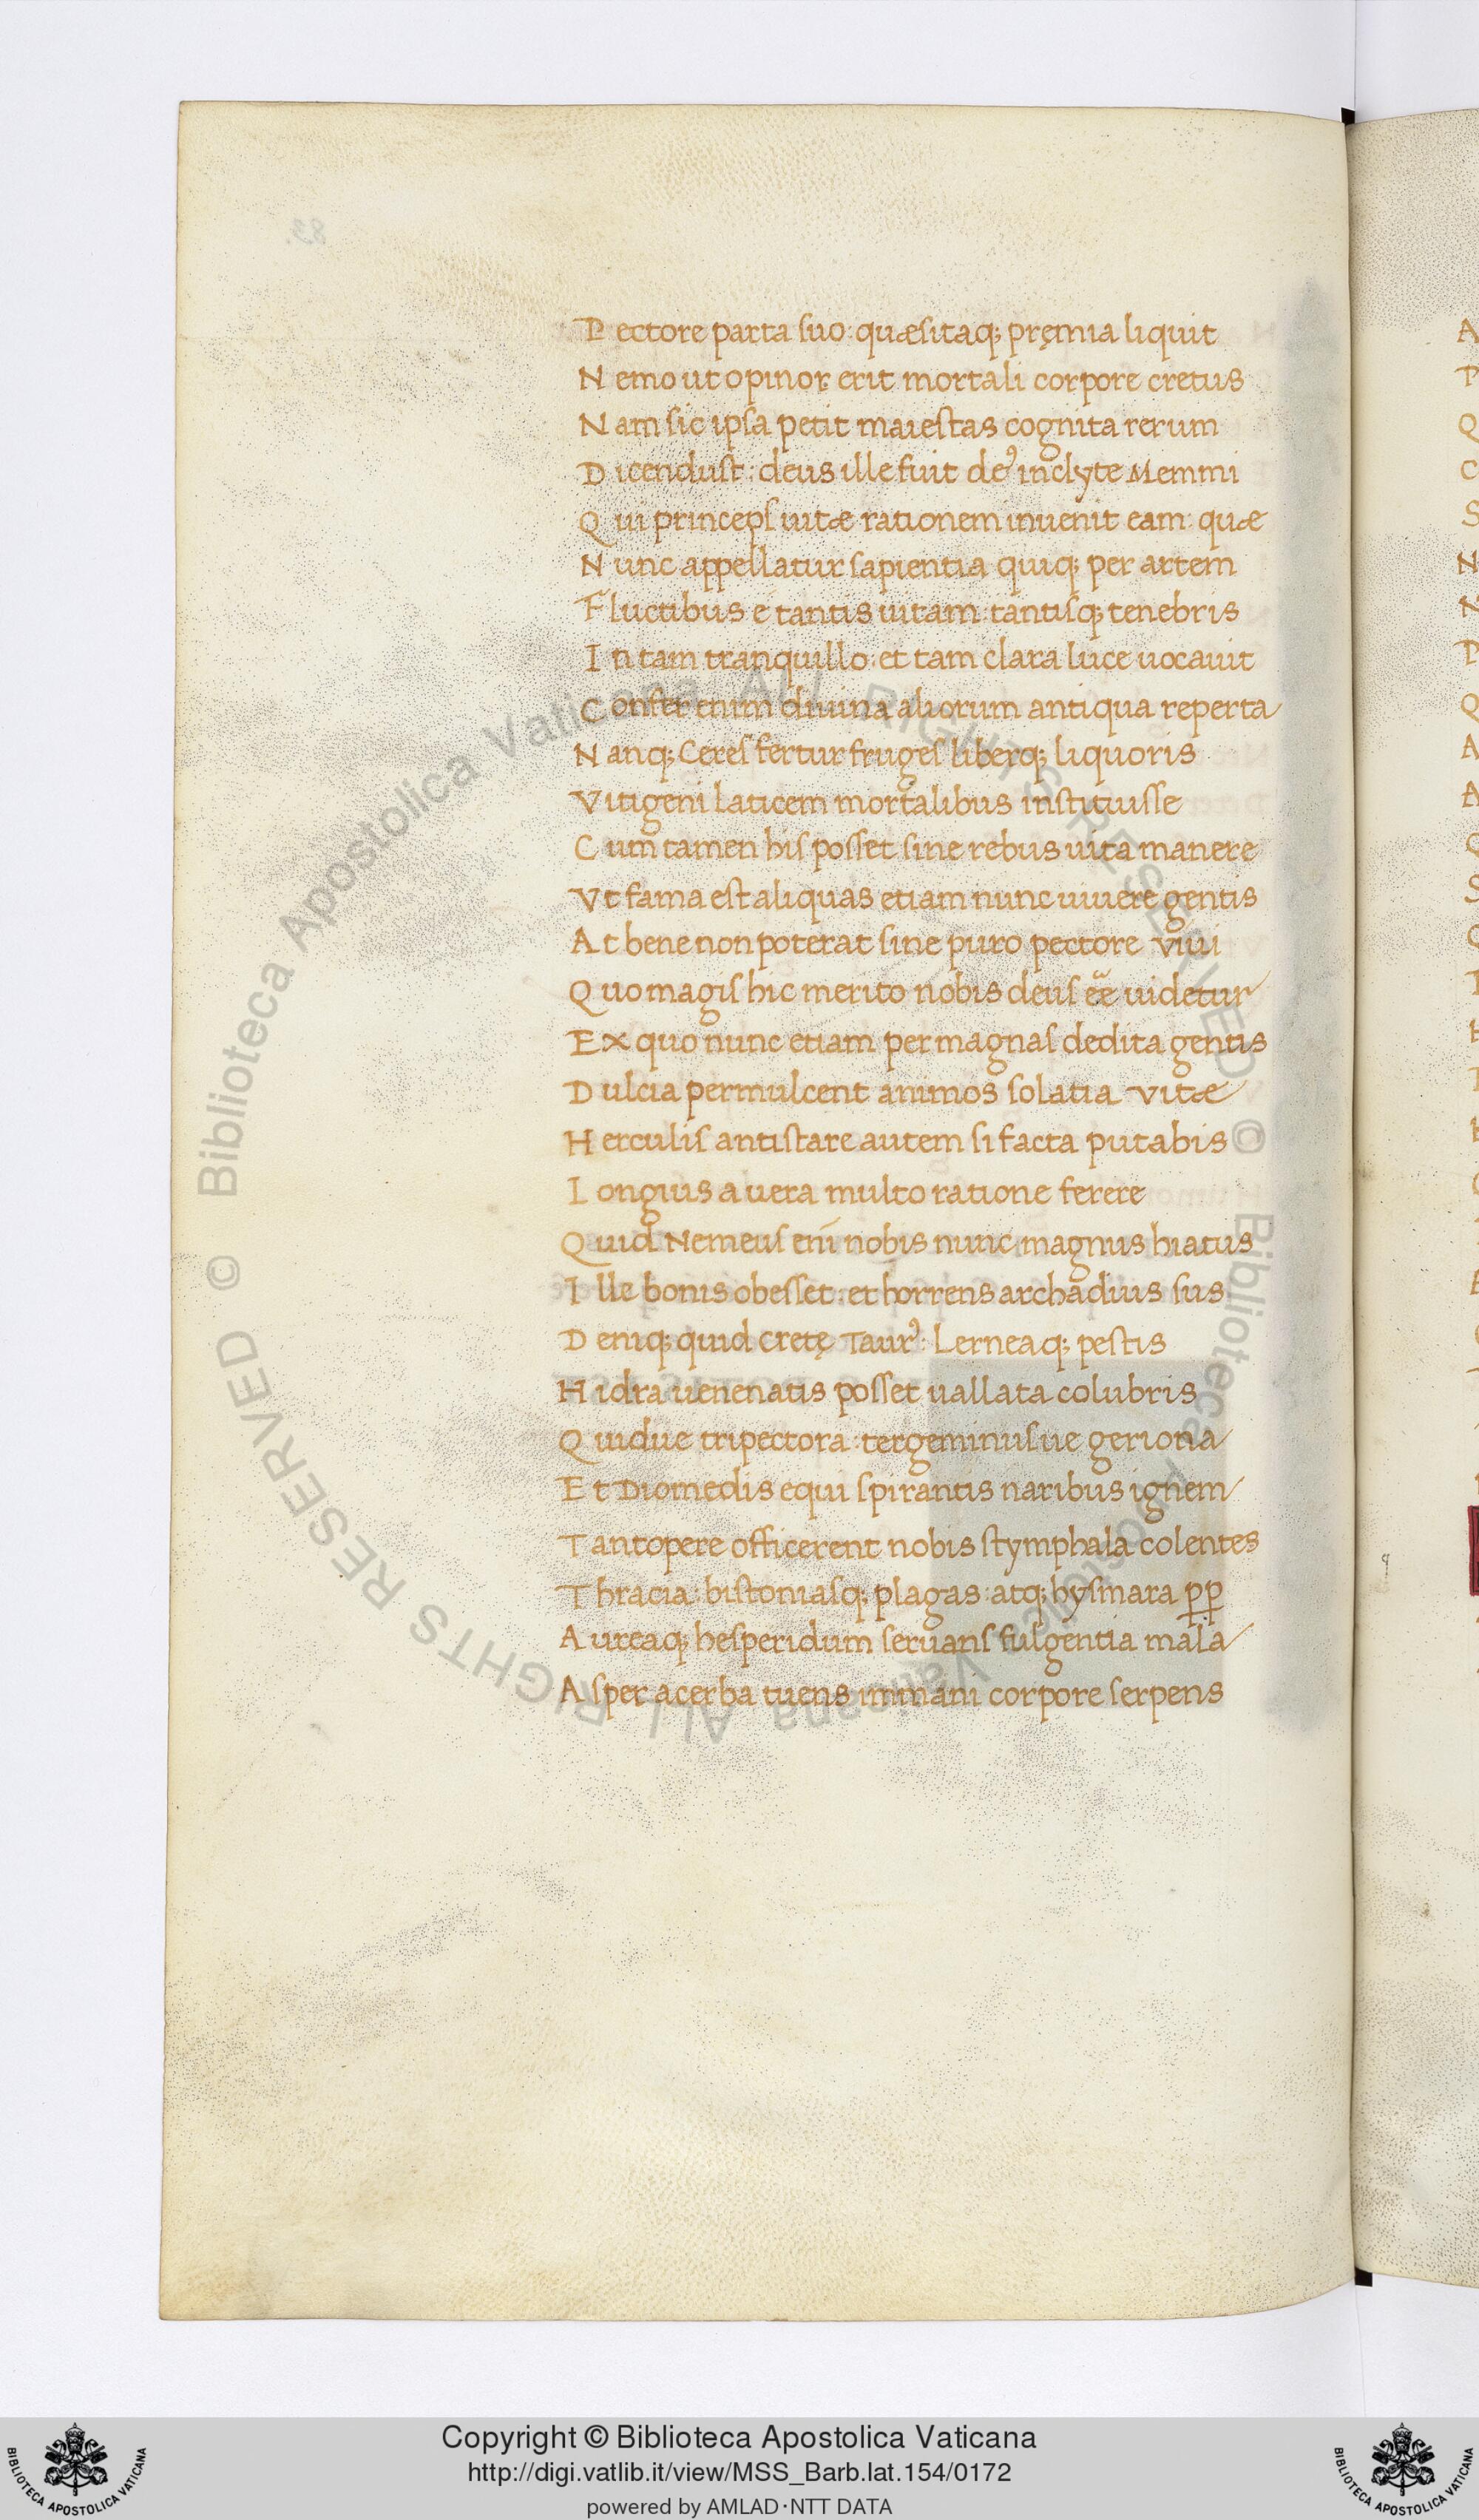 P ectore parta suo: quæsitaq; pręmia liquit
N emo ut opinor erit mortali corpore cretus
N am sic ipsa petit maiestas cognita rerum
D icendust: deus ille fuit deꝰ inclyte Memmi
Q ui princeps uitæ rationem inuenit eam: quæ
N unc appellatur sapientia quiq; per artem
F luctibus é tantis uitam: tantisq; tenebris
I n tam tranquillo: et tam clara luce uocauit
C onfer enim diuina aliorum antiqua reperta
N anq; Ceres fertur fruges liberq; liquoris
V itigeni laticem mortalibus instituisse
C um tamen his posset sine rebus uita manere
V t fama est aliquas etiam nunc uiuere gentis
A t bene non poterat sine puro pectore viui
Q uo magis hic merito nobis deus ee̅ uidetur
E x quo nunc etiam per magnas dedita gentis
D ulcia permulcent animos solatia vitæ
H erculis antistare autem si facta putabis
L ongius a uera multo ratione ferere
Q uid Nemeus eni̅ nobis nunc magnus hiatus
I lle bonis obesset: et horrens archadius sus
D eniq; quid cretę Taurꝰ: Lerneaq; pestis
H idra uenenatis posset uallata colubris
Q uidue tripectora: tergeminusue geriona
E t Diomedis equi spirantis naribus ignem
T antopere officerent nobis stymphala colentes
T hracia: bistoniasq; plagas: atq; hysmara ꝑꝑ
A ureaq; hesperidum seruans fulgentia mala
A sper acerba tuens immani corpore serpens
© Biblioteca Apostolica Vaticana ALL RIGHTS RESERVED
© Biblioteca Apostolica Vaticana ALL RIGHTS RESERVED
Copyright © Biblioteca Apostolica Vaticana
http://digi.vatlib.it/view/MSS_Barb.lat.154/0172
powered by AMLAD·NTT DATA
BIBLIOTECA APOSTOLICA VATICANA
BIBLIOTECA APOSTOLICA VATICANA